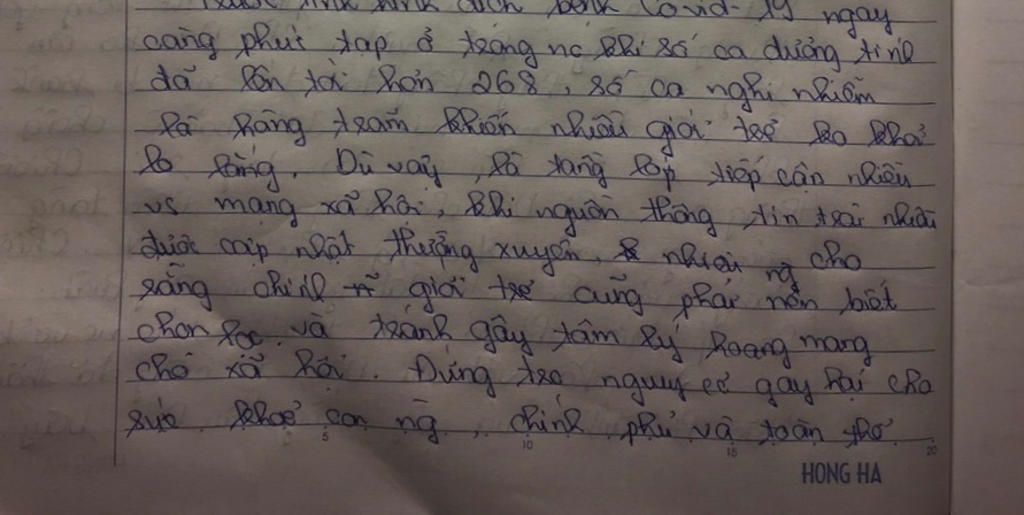 Trước tình hình dịch bệnh Covid-19 ngày
càng phức tạp ở trong nc khi số ca dương tính
đã lên tới hơn 268, số ca nghi nhiễm
là hàng trăm khiến nhiều giới trẻ lo
lo lắng. Dù vậy, là tầng lớp tiếp cận nhiều
vs mạng xã hội, khi nguồn thông tin trái nhiều
được cập nhật thường xuyên, nhiều ng cho
rằng chính giới trẻ cũng phải nên biết
chọn lọc và tránh gây tâm lý hoang mang
cho xã hội. Đứng trc nguy cơ gây hại cho
sức khoẻ con ng, chính phủ và toàn thể
HONG HA
5 10 15 20